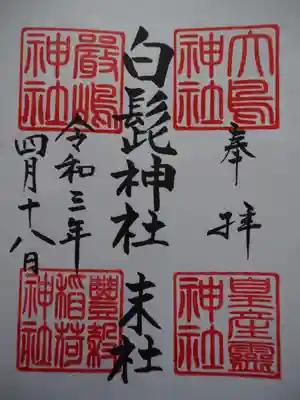 神社
皇産霊
神社
奉拝
白髭神社 末社
令和三年
四月十八日
嚴嶋
神社
豐穀
稲荷
神社